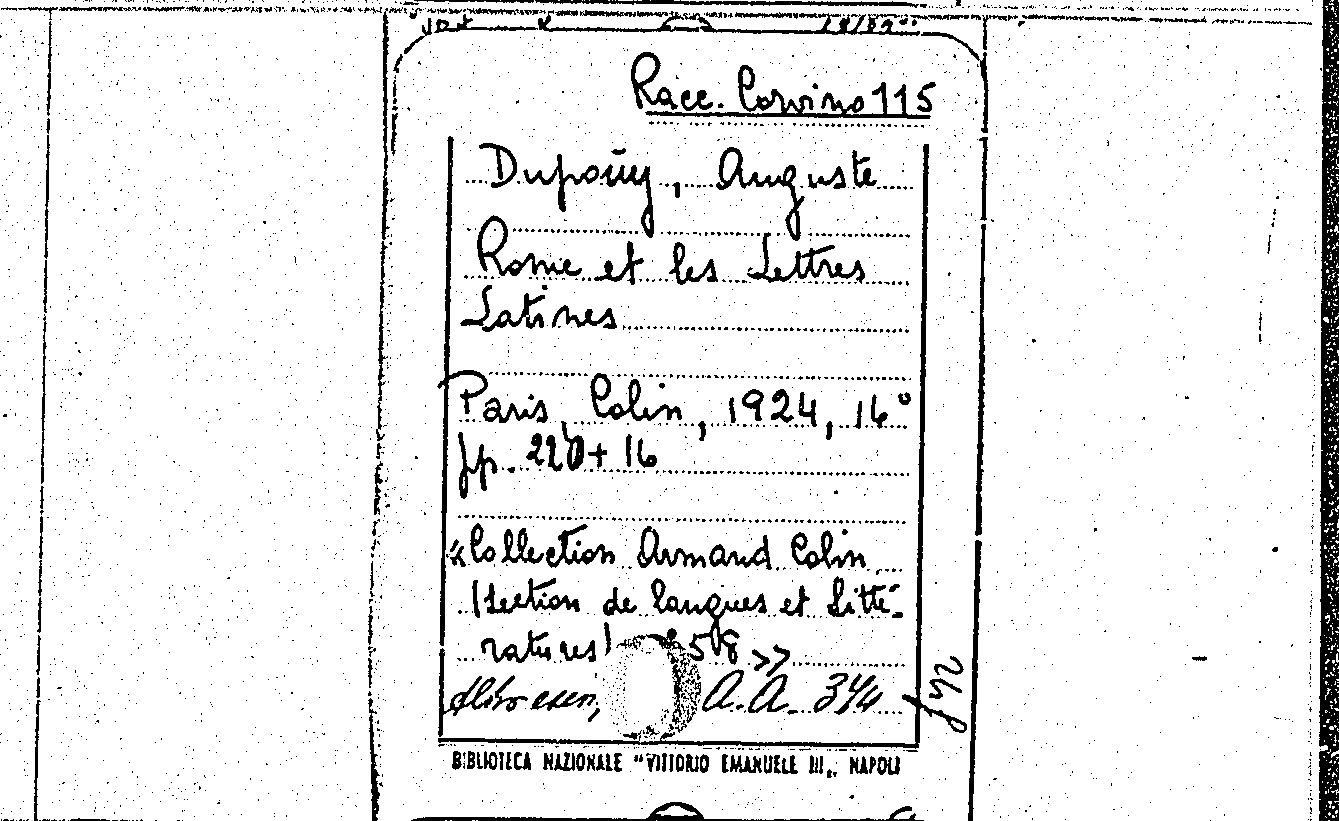 Racc. Corvino 115
Dupoüy, Auguste
Rome et les Lettres
Latines
Paris, Colin, 1924, 16°
pp. 220+16
«Collection Armand Colin
(Section de langues et Litté-
ratures) 58 »
Altro esem, A.A. 3
BIBLIOTECA NAZIONALE "VITTORIO EMANUELE III„ NAPOLI